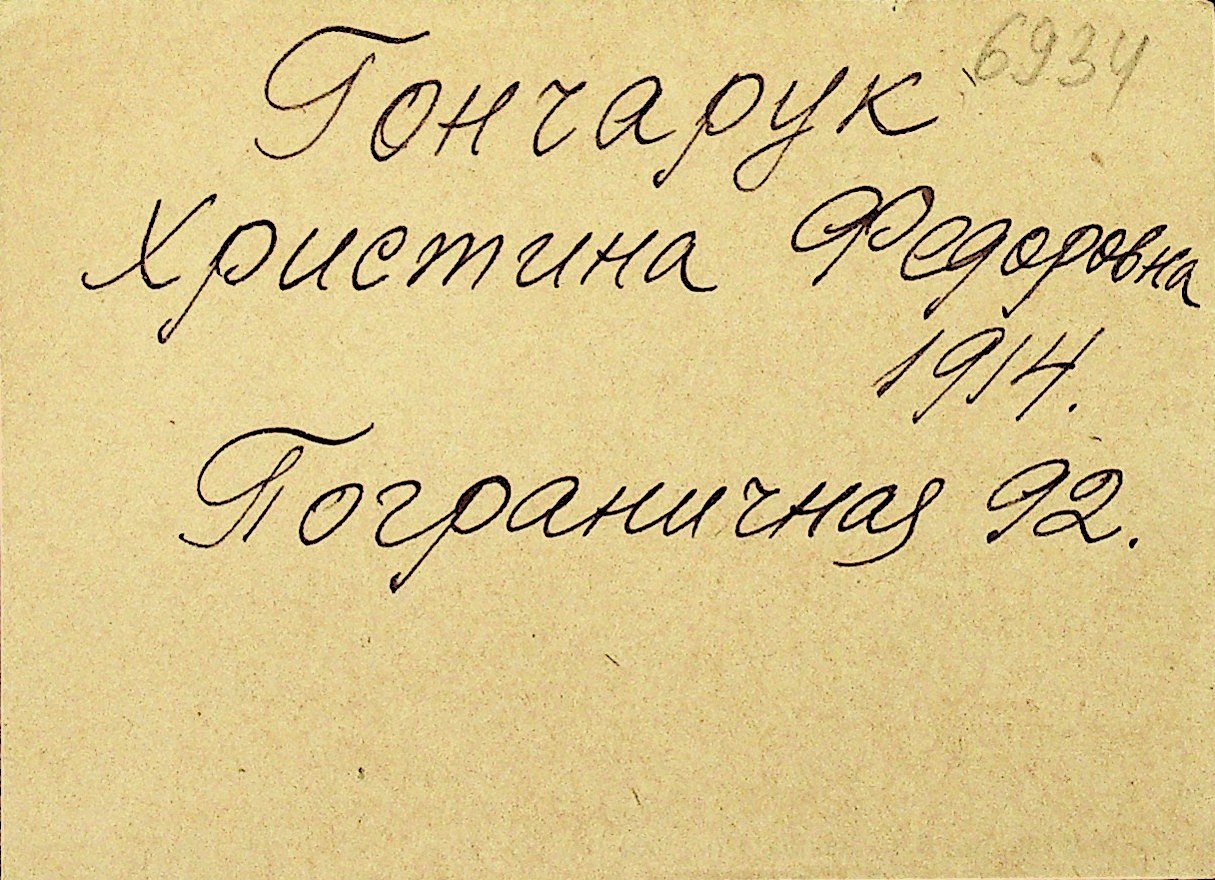 6934
Гончарук
Христина Федоровна
1914.
Пограничная 92.